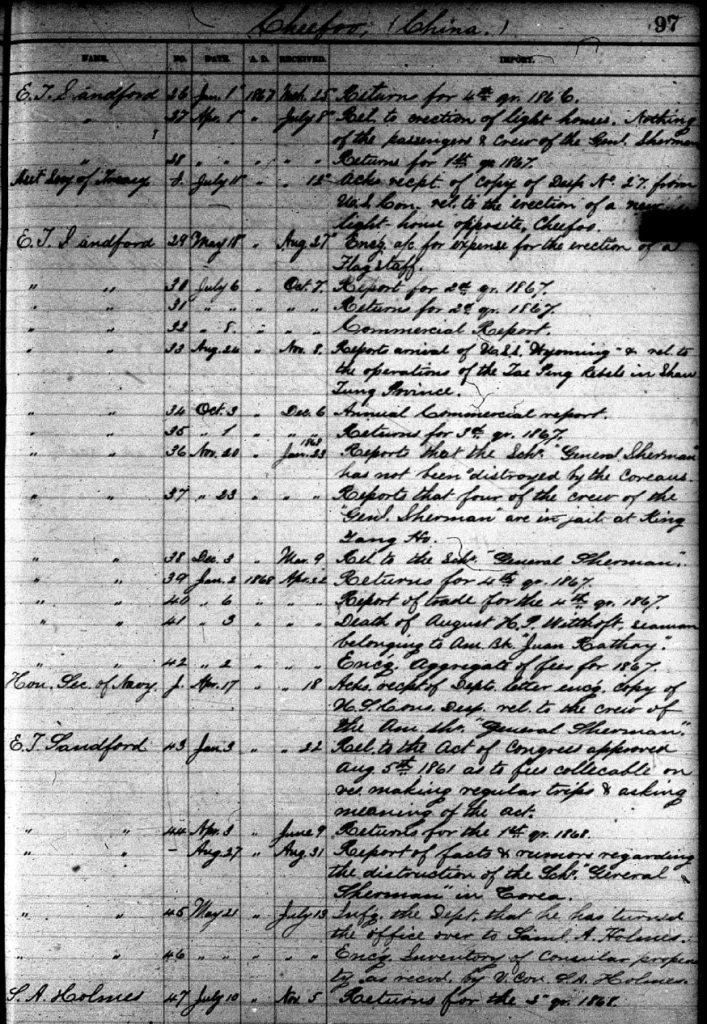 Cheefoo, (China.) 97
NAME. NO. DATE. A.D. RECEIVED. IMPORT.
E. T. Sandford 26 Jan. 1st 1867 Mch. 25 Returns for 4th qr. 1866.
" 27 Apr. 1st " July 8th Rel. to erection of light houses. Nothing
of the passengers & crew of the Genl. Sherman
" 28 " " " " Returns for 1st qr 1867.
Asst Secy of Treasy July 11 " " 12 Acks recpt. of copy of Desp No. 27. from
U.S. Con. rel. to the erection of a new
light-house opposite, Cheefoo.
E. T. Sandford 29 May 18 " Aug 27 Encg a/c. for expense for the erection of a
Flag staff.
" " 30 July 6 " Oct. 7. Report for 2d qr. 1867.
" " 31 " " " " " Returns for 2d qr. 1867.
" " 32 " 8. " " " Commercial Report.
" " 33 Aug. 24 " Nov. 8. Reports arrival of U.S.S. "Wyoming" & rel. to
the operations of the Tae Ping Rebels in Shan
Tung Province.
" " 34 Oct. 3 " Dec. 6 Annual Commercial report.
" " 35 " 1 " " " Returns for 3d qr. 1867.
" " 36 Nov. 20 " Jan. 23 1868 Reports that the Schr. "General Sherman"
has not been distroyed by the Coreans.
" " 37 " 23 " " " Reports that four of the crew of the
"Genl. Sherman" are in jail at King
Yang Ho.
" " 38 Dec. 3 " Mar. 9 Rel. to the Schr. "General Sherman".
" " 39 Jan. 2 1868 Apr. 22 Returns for 4th qr. 1867.
" " 40 " 6 " " " Report of trade for the 4th qr. 1867.
" " 41 " 3 " " " Death of August H. P. Witthoft, seaman
belonging to Am. Bk. "Juan Rathay".
" " 42 " 2 " " " Encg. Aggregate of fees for 1867.
Hon. Sec. of Navy J. Apr. 17 " " 18 Acks. recpt of Dept. letter encg. copy of
U.S. Cons. Desp. rel. to the crew of
the Am. Schr. "General Sherman".
E. T. Sandford 43 Jan. 3 " " 22 Rel. to the Act of Congress approved
Aug 5th 1861 as to fees collecable on
ves. making regular trips & asking
meaning of the act.
" " 44 Apr. 3 " June 9 Returns for the 1st qr. 1868.
" " - Aug. 27 " Aug. 31 Report of facts & rumors regarding
the distruction of the Schr. "General
Sherman" in Corea.
" " 45 May 21 " July 13 Infg. the Dept. that he has turned
the office over to Saml. A. Holmes.
" " 46 " " " " " Encg Inventory of Consular proper-
ty as recvd. by V. Con. S. A. Holmes.
S. A. Holmes 47 July 10 " Nov. 5 Returns for the qr. 1868.